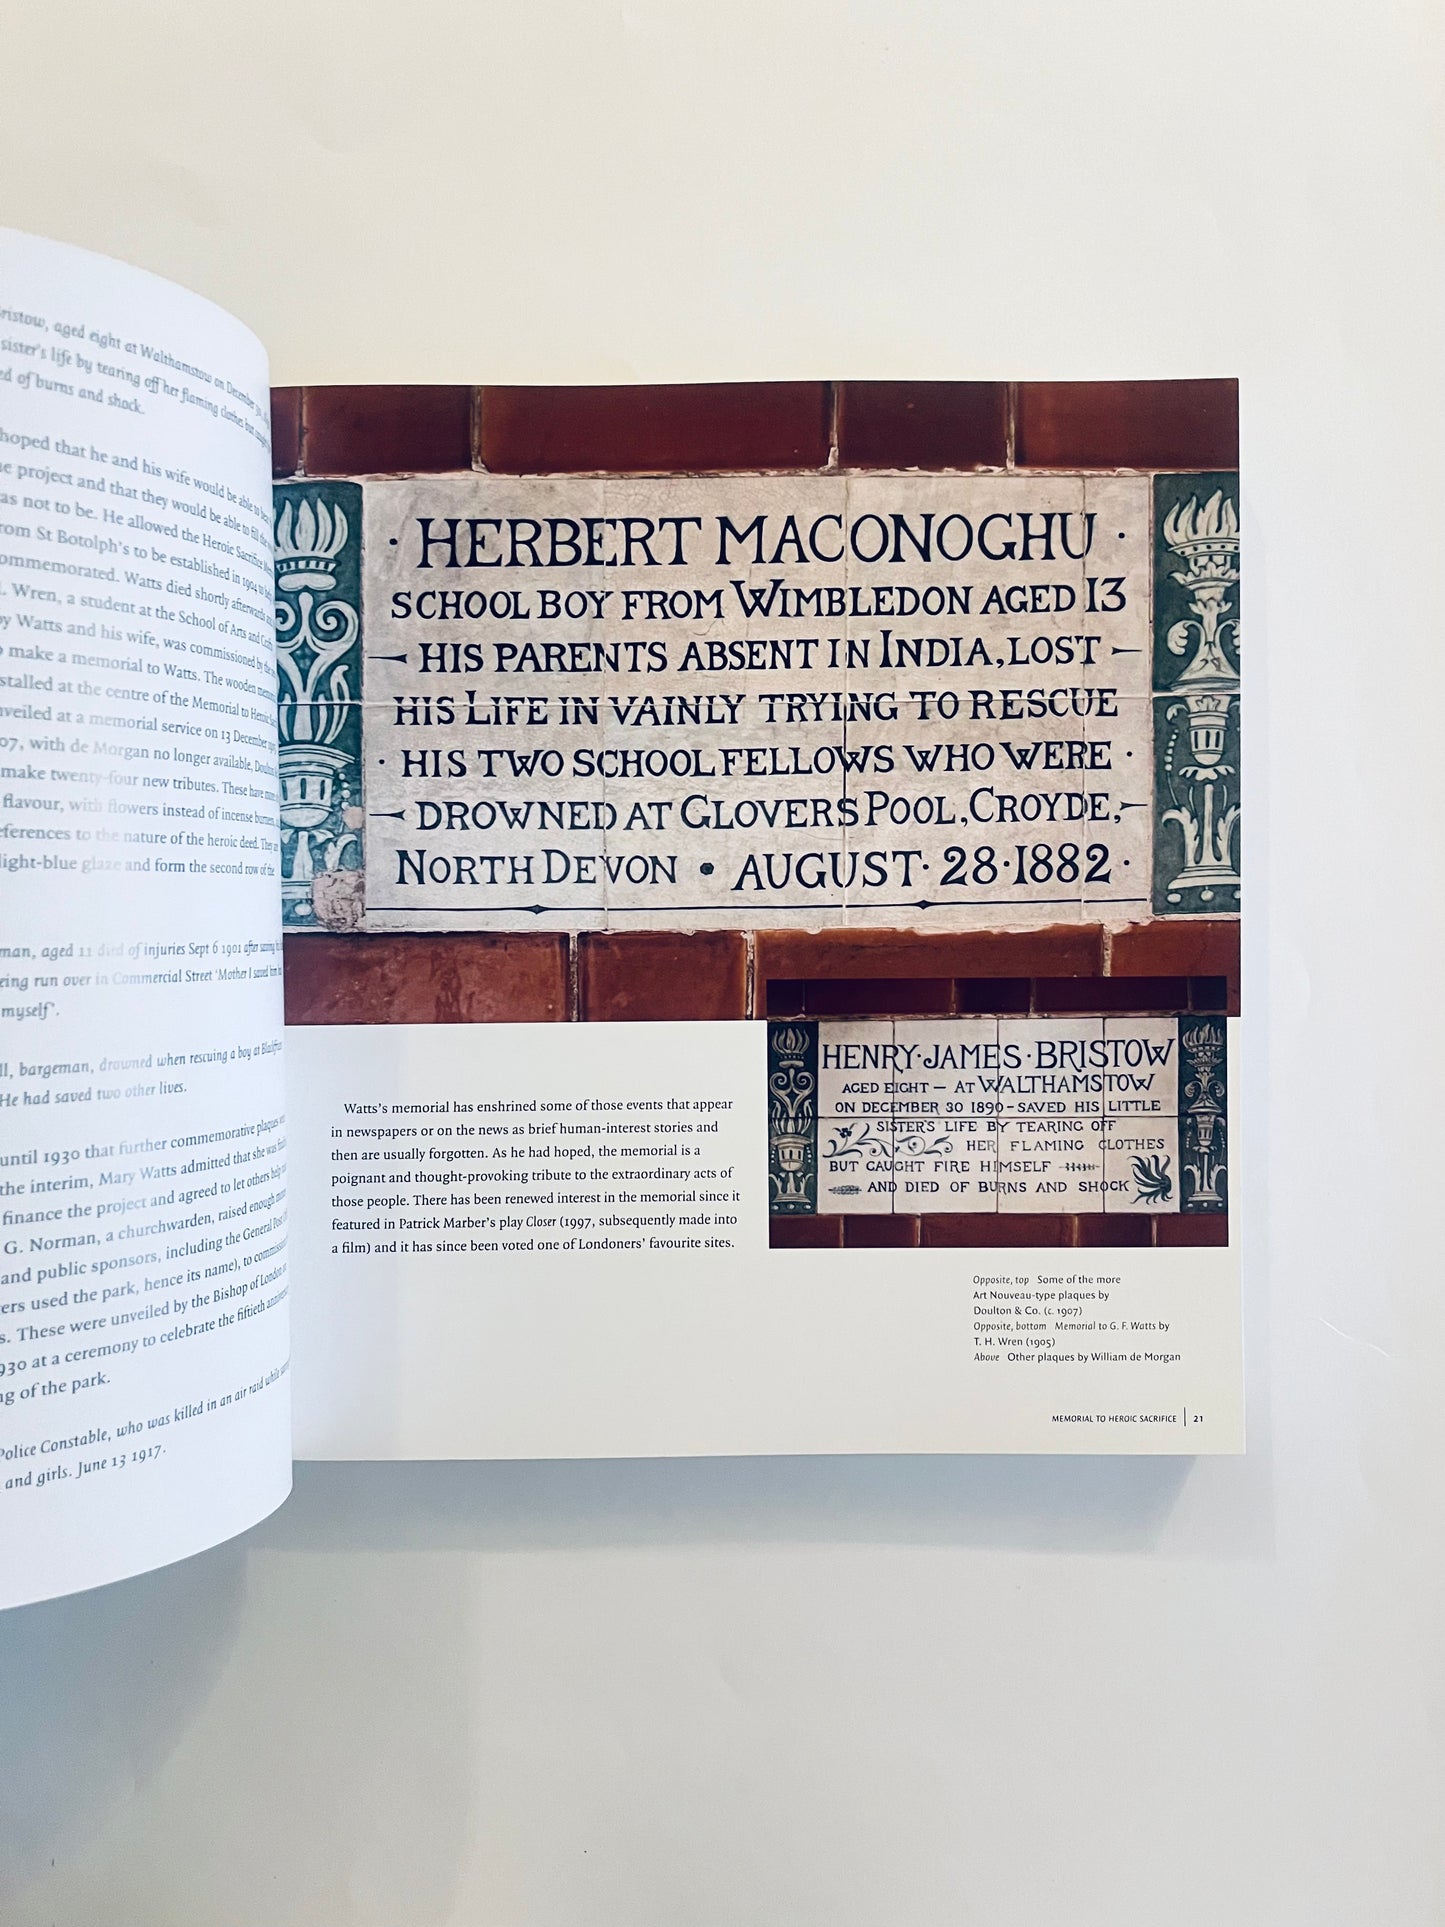 ristow, aged eight at Walthamstow on December
sister's life by tearing off her flaming clothes but caught
ed of burns and shock.
hoped that he and his wife would be able to
e project and that they would be able to fill the
as not to be. He allowed the Heroic Sacrifice
rom St Botolph's to be established in 1904 to
ommemorated. Watts died shortly afterwards
. Wren, a student at the School of Arts and Crafts
by Watts and his wife, was commissioned by the
o make a memorial to Watts. The wooden
stalled at the centre of the Memorial to Heroic
nveiled at a memorial service on 13 December
07, with de Morgan no longer available, Doulton
make twenty-four new tributes. These have
flavour, with flowers instead of incense burners,
eferences to the nature of the heroic deed. They
light-blue glaze and form the second row of the
man, aged 11 died of injuries Sept 6 1901 after saving
eing run over in Commercial Street 'Mother I saved him
myself'.
ll, bargeman, drowned when rescuing a boy at
He had saved two other lives.
until 1930 that further commemorative plaques
the interim, Mary Watts admitted that she was
finance the project and agreed to let others help
G. Norman, a churchwarden, raised enough
and public sponsors, including the General Post
ers used the park, hence its name), to
s. These were unveiled by the Bishop of London
930 at a ceremony to celebrate the fiftieth
ng of the park.
Police Constable, who was killed in an air raid while
and girls. June 13 1917.
· HERBERT MACONOGHU ·
SCHOOL BOY FROM WIMBLEDON AGED 13
HIS PARENTS ABSENT IN INDIA, LOST
HIS LIFE IN VAINLY TRYING TO RESCUE
· HIS TWO SCHOOL FELLOWS WHO WERE ·
DROWNED AT GLOVERS POOL, CROYDE,
NORTH DEVON • AUGUST · 28 · 1882 ·
HENRY · JAMES · BRISTOW
AGED EIGHT — AT WALTHAMSTOW
ON DECEMBER 30 1890 - SAVED HIS LITTLE
SISTER'S LIFE BY TEARING OFF
HER FLAMING CLOTHES
BUT CAUGHT FIRE HIMSELF
AND DIED OF BURNS AND SHOCK
Watts's memorial has enshrined some of those events that appear
in newspapers or on the news as brief human-interest stories and
then are usually forgotten. As he had hoped, the memorial is a
poignant and thought-provoking tribute to the extraordinary acts of
those people. There has been renewed interest in the memorial since it
featured in Patrick Marber's play Closer (1997, subsequently made into
a film) and it has since been voted one of Londoners' favourite sites.
Opposite, top Some of the more
Art Nouveau-type plaques by
Doulton & Co. (c. 1907)
Opposite, bottom Memorial to G. F. Watts by
T. H. Wren (1905)
Above Other plaques by William de Morgan
MEMORIAL TO HEROIC SACRIFICE | 21